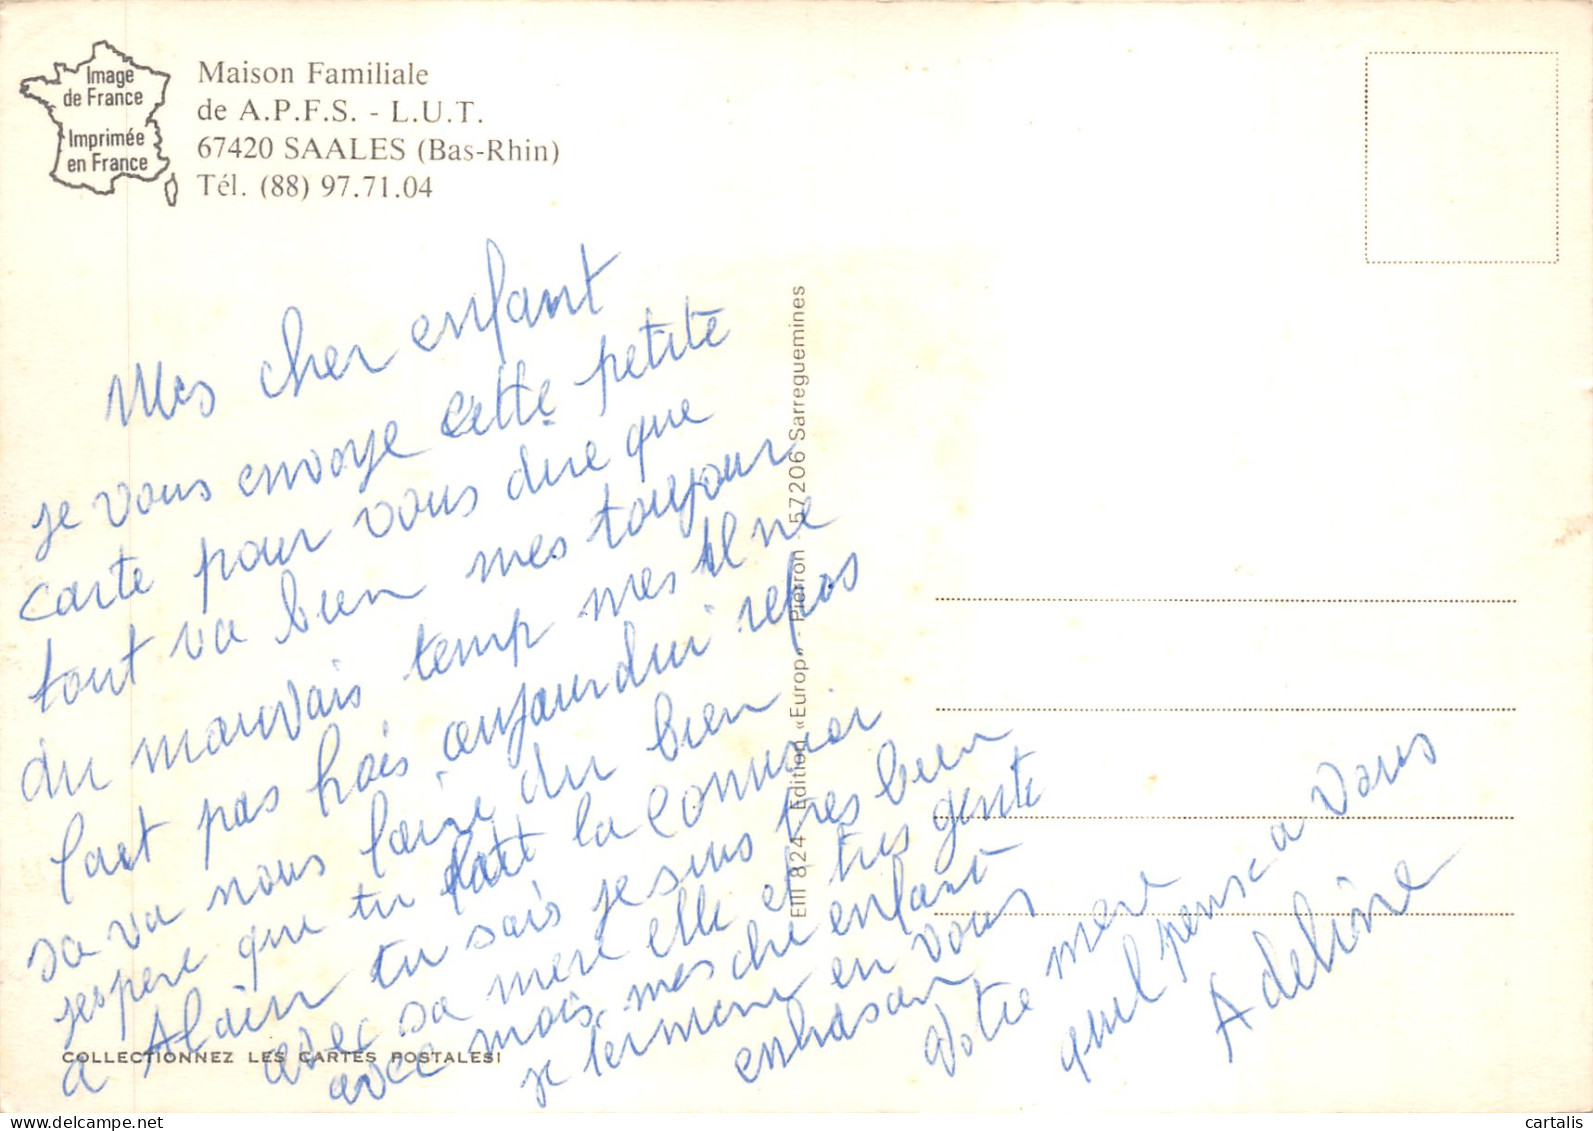 Image
de France
Imprimée
en France
Maison Familiale
de A.P.F.S. - L.U.T.
67420 SAALES (Bas-Rhin)
Tél. (88) 97.71.04
Mes cher enfant
je vous envoye cette petite
carte pour vous dire que
tout va bien mes toujour
du mauvais temp mes il ne
fait pas frois aujourdui repos
sa va nous faire du bien
jespere que tu fait la commision
a Alain tu sais je suis tres bien
avec sa mere elle et tres gente
avec mois, mes cher enfant
je termine en vous
enbrasan
Votre mere
qui pense a vous
Adeline
EIII 824 - Edition «Europ» - Pierron - 57206 Sarreguemines
COLLECTIONNEZ LES CARTES POSTALES!
cartalis
www.delcampe.net